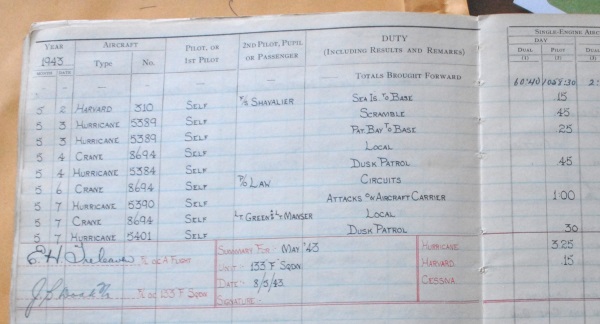 YEAR AIRCRAFT PILOT, OR 1ST PILOT 2ND PILOT, PUPIL OR PASSENGER DUTY (INCLUDING RESULTS AND REMARKS) SINGLE-ENGINE AIRC
1943 Type No. DAY
MONTH DATE DUAL PILOT DUAL
(1) (2) (3)
— — — — — TOTALS BROUGHT FORWARD 60:40 1058:30 2:
5 2 HARVARD 310 SELF F/S SHAVALIER SEA IS. TO BASE 15
5 3 HURRICANE 5389 SELF SCRAMBLE 45
5 3 HURRICANE 5389 SELF PAT. BAY TO BASE 25
5 4 CRANE 8694 SELF LOCAL
5 4 HURRICANE 5384 SELF DUSK PATROL 45
5 6 CRANE 8694 SELF P/O LAW CIRCUITS
5 7 HURRICANE 5390 SELF ATTACKS ON AIRCRAFT CARRIER 1:00
5 7 CRANE 8694 SELF LT GREEN & LT MANSER LOCAL
5 7 HURRICANE 5401 SELF DUSK PATROL 30
SUMMARY FOR MAY '43 HURRICANE 3:25
OC A FLIGHT UNIT:- 133 'F' SQDN HARVARD 15
DATE:- 8/5/43 CESSNA
OC 133 'F' SQDN SIGNATURE:-